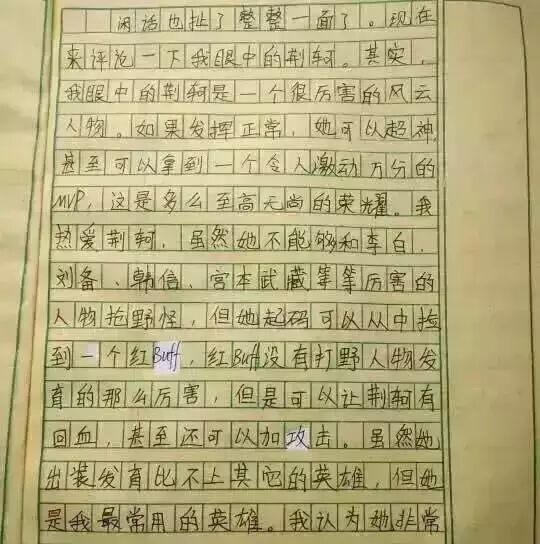 闲话也扯了整整一面了。现在
来评论一下我眼中的荆轲。其实,
我眼中的荆轲是一个很厉害的风云
人物。如果发挥正常,她可以超神,
甚至可以拿到一个令人激动万分的
MVP,这是多么至高无尚的荣耀。我
热爱荆轲,虽然她不能够和李白、
刘备、韩信、宫本武藏等等厉害的
人物抢野怪,但她起码可以从中捡
到一个红Buff,红Buff没有打野人物发
育的那么厉害,但是可以让荆轲有
回血,甚至还可以加攻击。虽然她
出装发育比不上其它的英雄,但她
是我最常用的英雄。我认为她非常